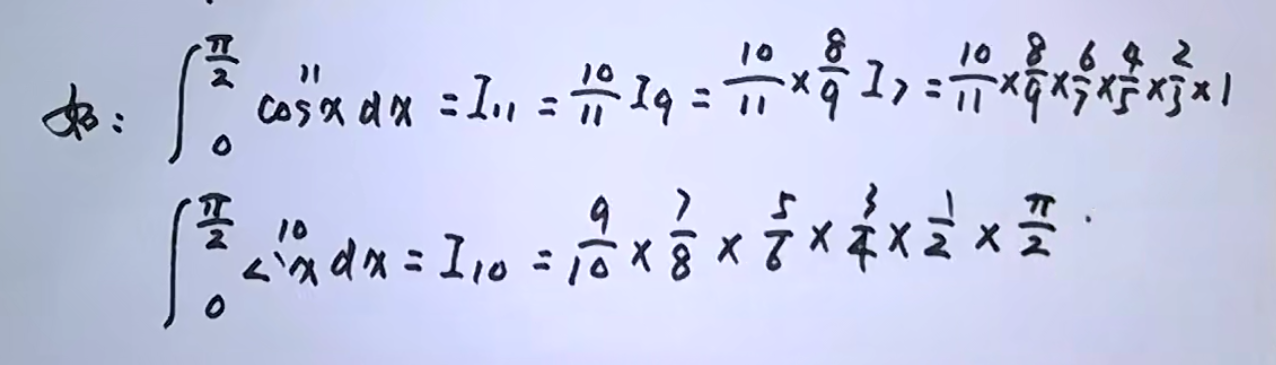 如: ∫₀^{π/2} cos¹¹x dx = I₁₁ = 10/11 I₉ = 10/11 × 8/9 I₇ = 10/11 × 8/9 × 6/7 × 4/5 × 2/3 × 1
∫₀^{π/2} sin¹⁰x dx = I₁₀ = 9/10 × 7/8 × 5/6 × 3/4 × 1/2 × π/2.